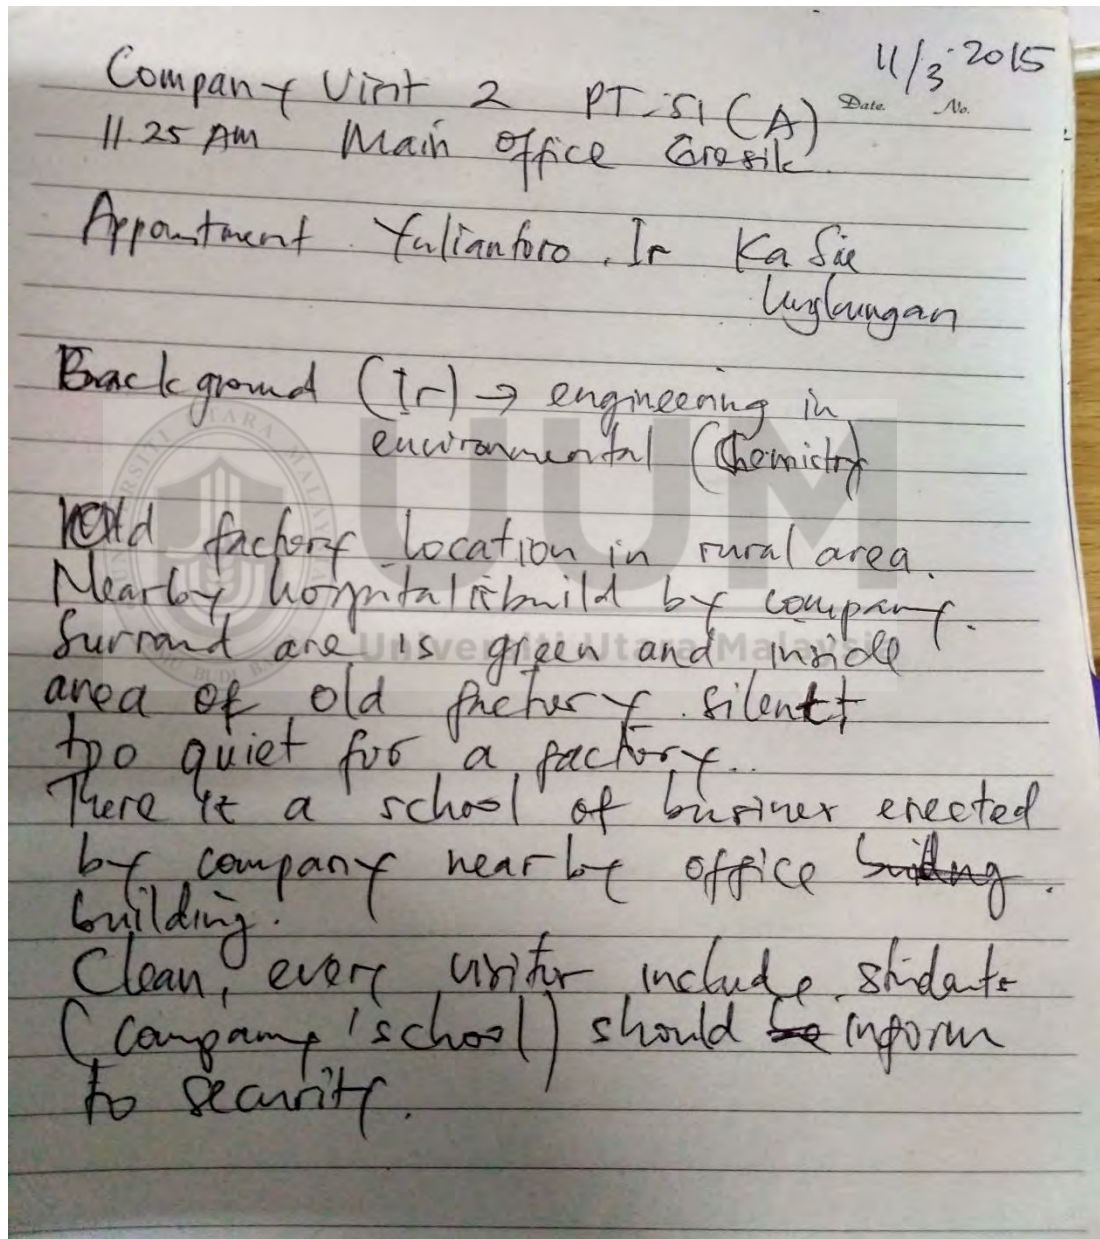 11/3-2015
Company Visit 2 PT-SI (A)
Date. No.
11.25 AM Main Office Gresik.
Appointment. Yuliantoro. Ir Ka Sie
Lingkungan
Background (Ir) → engineering in
environmental (Chemistry)
Old factory location in rural area.
Nearby hospital build by company.
Surrand are is green and inside
area of old factory. silent
too quiet for a factory..
There it a school of businer erected
by company nearby office building.
building.
Clean, every visitor include students
(company 'school) should be inform
to security.
UUM
Universiti Utara Malaysia
UNIVERSITI UTARA MALAYSIA